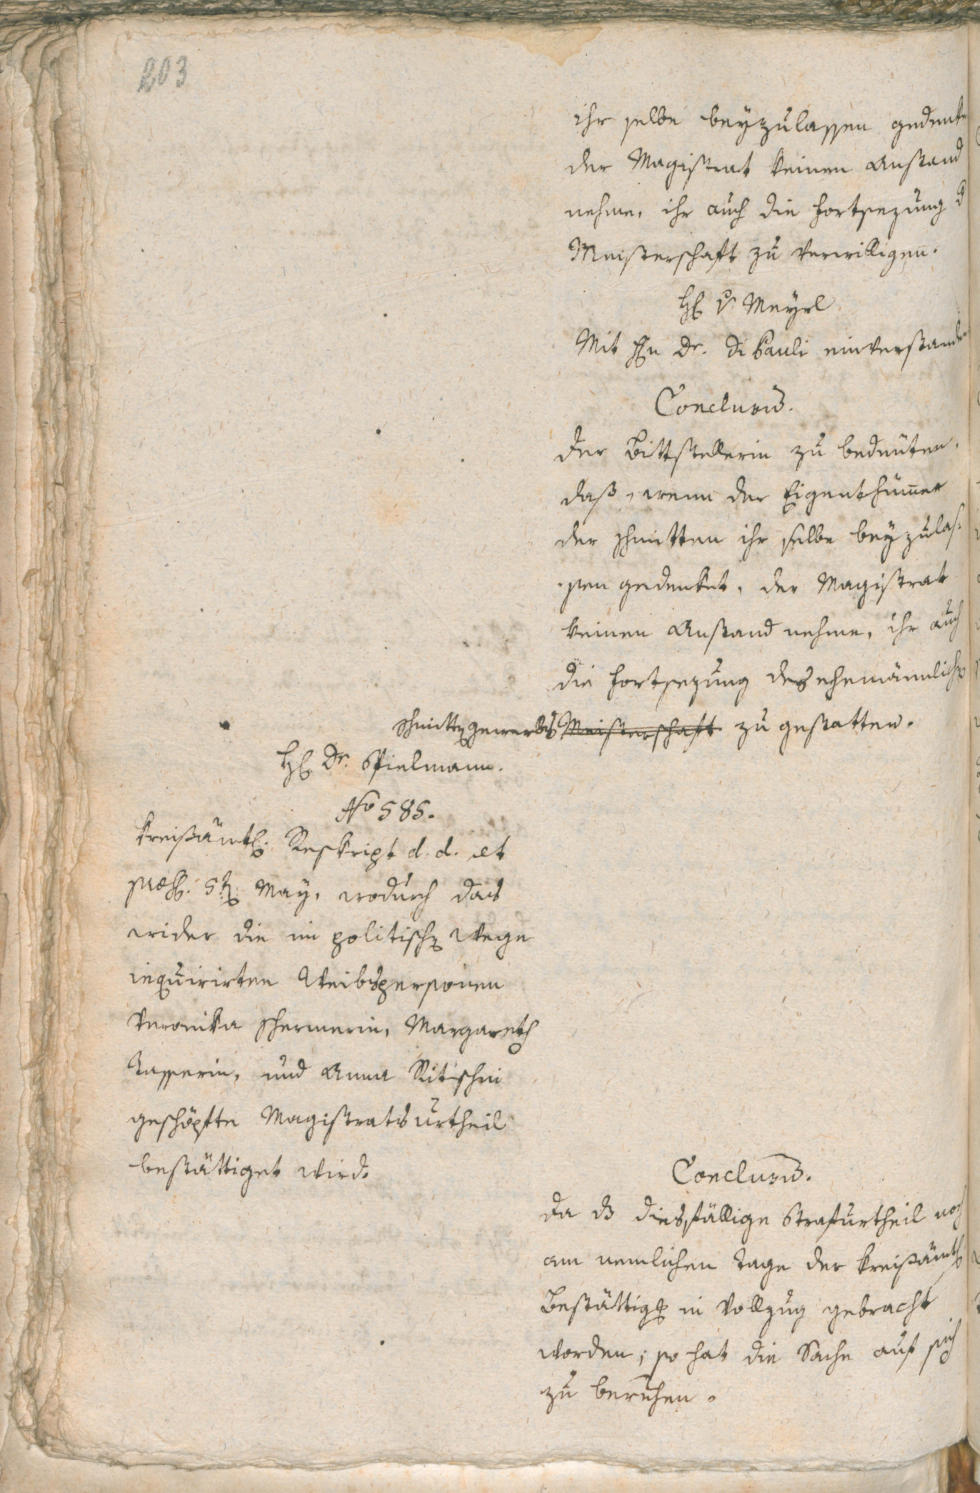 203
ihr selbe beyzulassen gedenke
der Magistrat keinen Anstand
nehme, ihr auch die Fortsezung d
Meisterschaft zu verwilligen.
H. v Meyrl
Mit Hn Dr. Di Pauli einverstanden
Conclusum.
der Bittstellerin zu bedeuten,
daß, wenn der Eigenthümmer
der Schmitten ihr selbe beyzulas-
sen gedenket, der Magistrat
keinen Anstand nehme, ihr auch
die Fortsezung des ehemännlichen
Schmittengewerbs Meisterschaft zu gestatten.
H. Dr. Spielmann.
No 585.
Kreißämtl. Reskript d. d. et
præs. 5t. May, wodurch das
wider die im politischen Wege
inquirirten Weibspersonen
Veronika Schermerin, Margareth
Tasserin, und Anna Ritschin
geschöpfte Magistratsurtheil
bestättiget wird.
Conclusum.
Da dz diesfällige Strafurtheil noch
am nemlichen Tage der kreißämtl
Bestättigg in Vollzug gebracht
worden; so hat die Sache auf sich
zu beruhen.